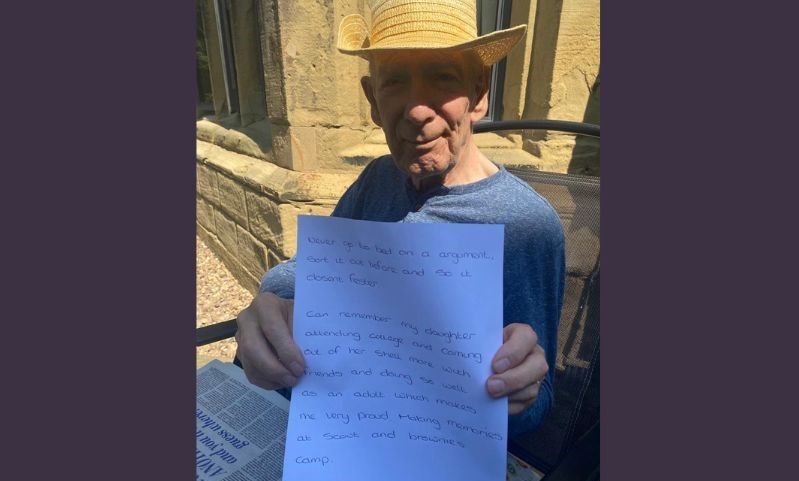 Never go to bed on a argument,
sort it out before and so it
dosent fester
Can remember my daughter
attending college and coming
out of her shell more with
friends and doing so well
as an adult which makes
me very proud Making memories
at Scout and brownies
camp.
and you n
guess where